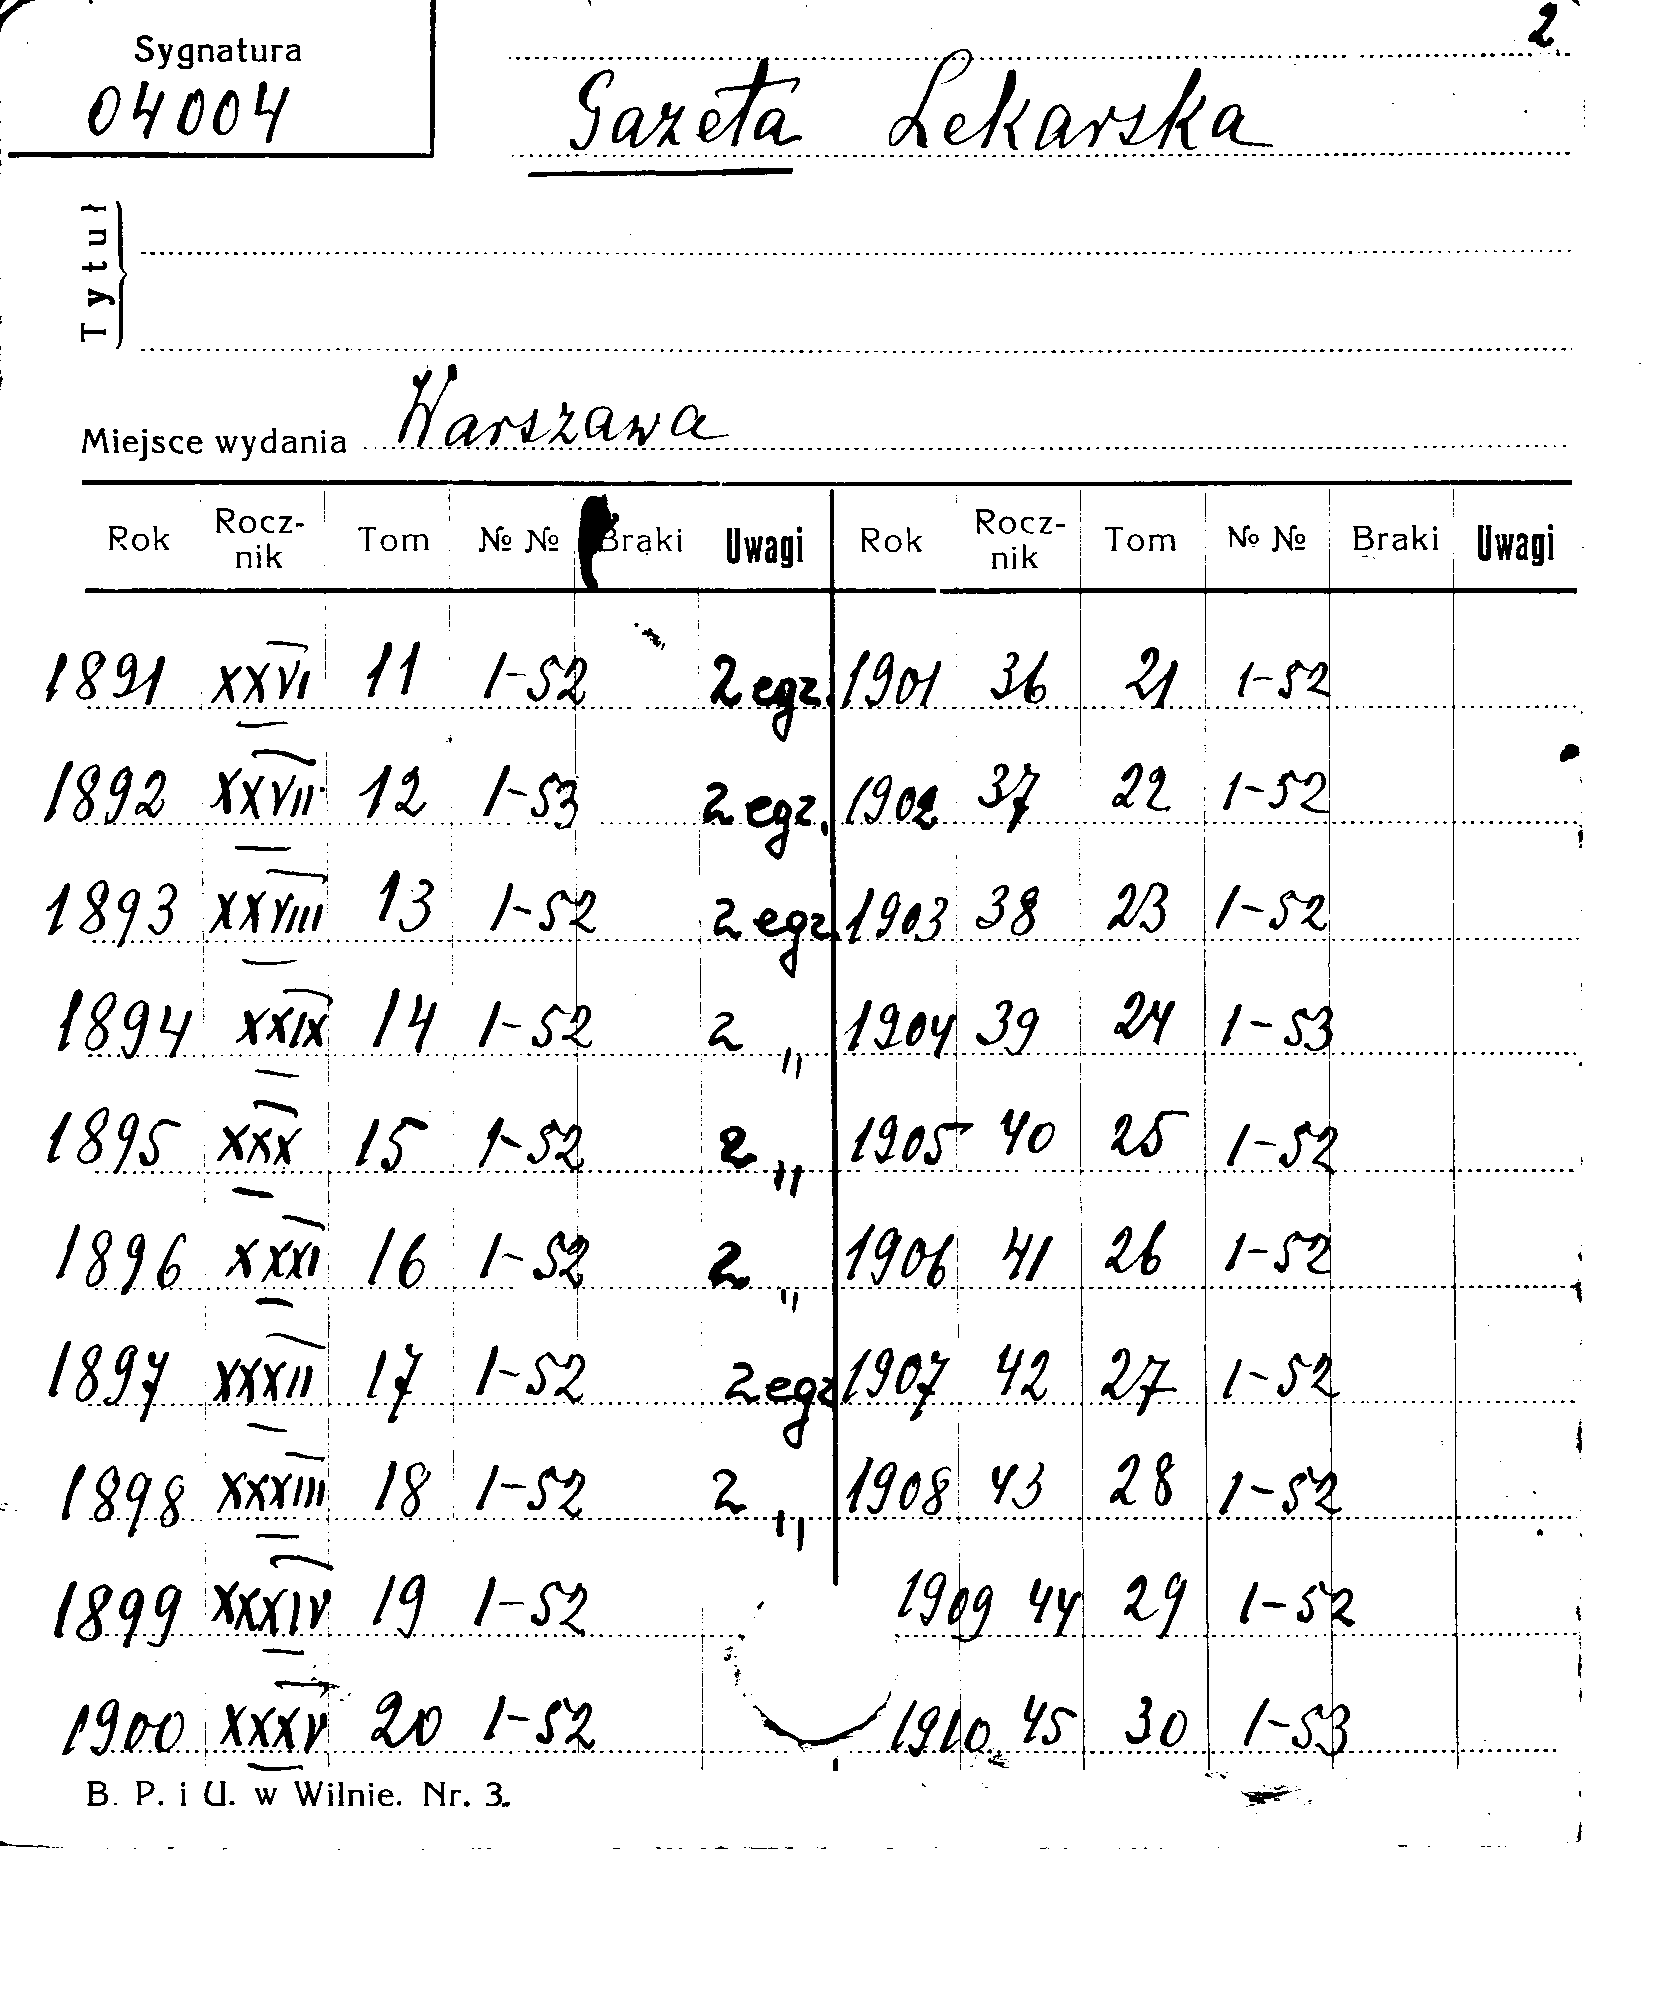 2
Sygnatura
04004
Gazeta Lekarska
Tytuł
Miejsce wydania Warszawa
Rok Rocz-nik Tom № № Braki Uwagi Rok Rocz-nik Tom № № Braki Uwagi
1891 XXVI 11 1-52 2 egz. 1901 36 21 1-52
1892 XXVII 12 1-53 2 egz. 1902 37 22 1-52
1893 XXVIII 13 1-52 2 egz. 1903 38 23 1-52
1894 XXIX 14 1-52 2 " 1904 39 24 1-53
1895 XXX 15 1-52 2 " 1905 40 25 1-52
1896 XXXI 16 1-52 2 " 1906 41 26 1-52
1897 XXXII 17 1-52 2 egz 1907 42 27 1-52
1898 XXXIII 18 1-52 2 " 1908 43 28 1-52
1899 XXXIV 19 1-52 1909 44 29 1-52
1900 XXXV 20 1-52 1910 45 30 1-53
B. P. i U. w Wilnie. Nr. 3.